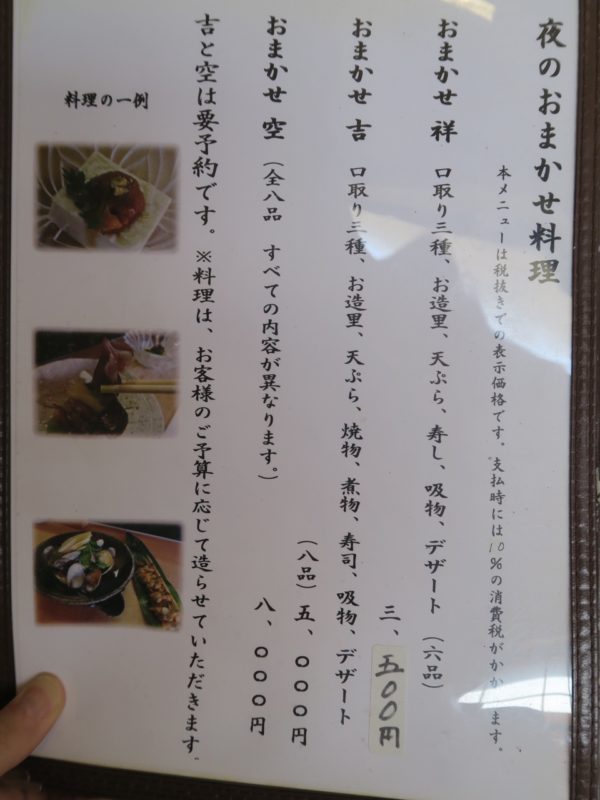 夜のおまかせ料理
本メニューは税抜きでの表示価格です。支払時には10%の消費税がかかります。
おまかせ 祥 口取り三種、お造里、天ぷら、寿し、吸物、デザート (六品)
三、五〇〇円
おまかせ 吉 口取り三種、お造里、天ぷら、焼物、煮物、寿司、吸物、デザート
(八品) 五、〇〇〇円
おまかせ 空 (全八品 すべての内容が異なります。)
八、〇〇〇円
吉と空は要予約です。※料理は、お客様のご予算に応じて造らせていただきます。
料理の一例